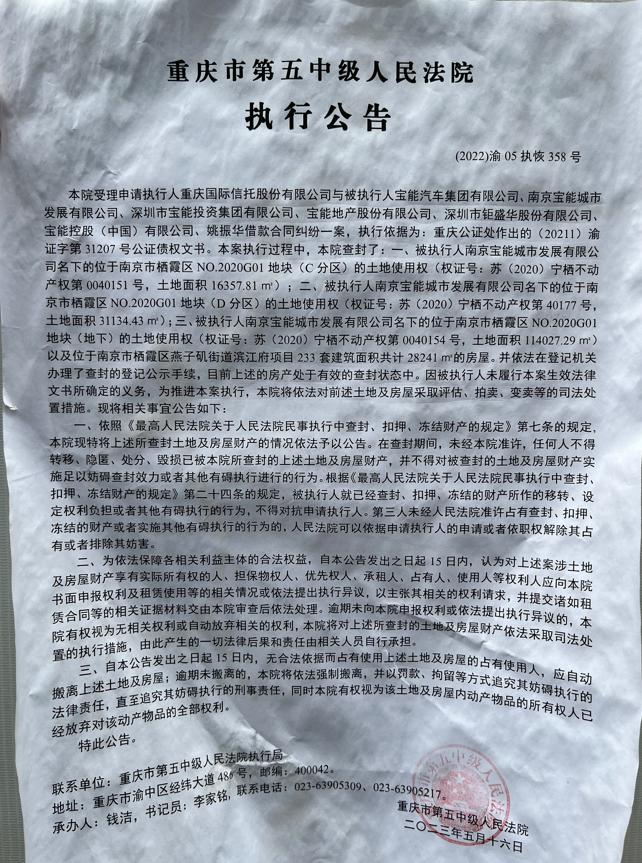 重庆市第五中级人民法院
执行公告
(2022)渝 05 执恢 358 号
本院受理申请执行人重庆国际信托股份有限公司与被执行人宝能汽车集团有限公司、南京宝能城市
发展有限公司、深圳市宝能投资集团有限公司、宝能地产股份有限公司、深圳市钜盛华股份有限公司、
宝能控股（中国）有限公司、姚振华借款合同纠纷一案，执行依据为：重庆公证处作出的（20211）渝
证字第 31207 号公证债权文书。本案执行过程中，本院查封了：一、被执行人南京宝能城市发展有限公
司名下的位于南京市栖霞区 NO.2020G01 地块（C 分区）的土地使用权（权证号：苏（2020）宁栖不动
产权第 0040151 号，土地面积 16357.81 ㎡）；二、被执行人南京宝能城市发展有限公司名下的位于南
京市栖霞区 NO.2020G01 地块（D 分区）的土地使用权（权证号：苏（2020）宁栖不动产权第 40177 号，
土地面积 31134.43 ㎡）；三、被执行人南京宝能城市发展有限公司名下的位于南京市栖霞区 NO.2020G01
地块（地下）的土地使用权（权证号：苏（2020）宁栖不动产权第 0040154 号，土地面积 114027.29 ㎡）
以及位于南京市栖霞区燕子矶街道滨江府项目 233 套建筑面积共计 28241 ㎡的房屋。并依法在登记机关
办理了查封的登记公示手续，目前上述的房产处于有效的查封状态中。因被执行人未履行本案生效法律
文书所确定的义务，为推进本案执行，本院将依法对前述土地及房屋采取评估、拍卖、变卖等的司法处
置措施。现将相关事宜公告如下：
一、依照《最高人民法院关于人民法院民事执行中查封、扣押、冻结财产的规定》第七条的规定，
本院现特将上述所查封土地及房屋财产的情况依法予以公告。在查封期间，未经本院准许，任何人不得
转移、隐匿、处分、毁损已被本院所查封的上述土地及房屋财产，并不得对被查封的土地及房屋财产实
施足以妨碍查封效力或者其他有碍执行进行的行为。根据《最高人民法院关于人民法院民事执行中查封、
扣押、冻结财产的规定》第二十四条的规定，被执行人就已经查封、扣押、冻结的财产所作的移转、设
定权利负担或者其他有碍执行的行为，不得对抗申请执行人。第三人未经人民法院准许占有查封、扣押、
冻结的财产或者实施其他有碍执行的行为的，人民法院可以依据申请执行人的申请或者依职权解除其占
有或者排除其妨害。
二、为依法保障各相关利益主体的合法权益，自本公告发出之日起 15 日内，认为对上述案涉土地
及房屋财产享有实际所有权的人、担保物权人、优先权人、承租人、占有人、使用人等权利人应向本院
书面申报权利及租赁使用等的相关情况或依法提出执行异议，以主张其相关的权利请求，并提交诸如租
赁合同等的相关证据材料交由本院审查后依法处理。逾期未向本院申报权利或依法提出执行异议的，本
院有权视为无相关权利或自动放弃相关的权利，本院将对上述所查封的土地及房屋财产依法采取司法处
置的执行措施，由此产生的一切法律后果和责任由相关人员自行承担。
三、自本公告发出之日起 15 日内，无合法依据而占有使用上述土地及房屋的占有使用人，应自动
搬离上述土地及房屋；逾期未搬离的，本院将依法强制搬离，并以罚款、拘留等方式追究其妨碍执行的
法律责任，直至追究其妨碍执行的刑事责任，同时本院有权视为该土地及房屋内动产物品的所有权人已
经放弃对该动产物品的全部权利。
特此公告。
联系单位：重庆市第五中级人民法院执行局
地址：重庆市渝中区经纬大道 486 号，邮编：400042。
承办人：钱洁，书记员：李家铭，联系电话：023-63905309、023-63905217。
重庆市第五中级人民法院
二〇二三年五月十六日